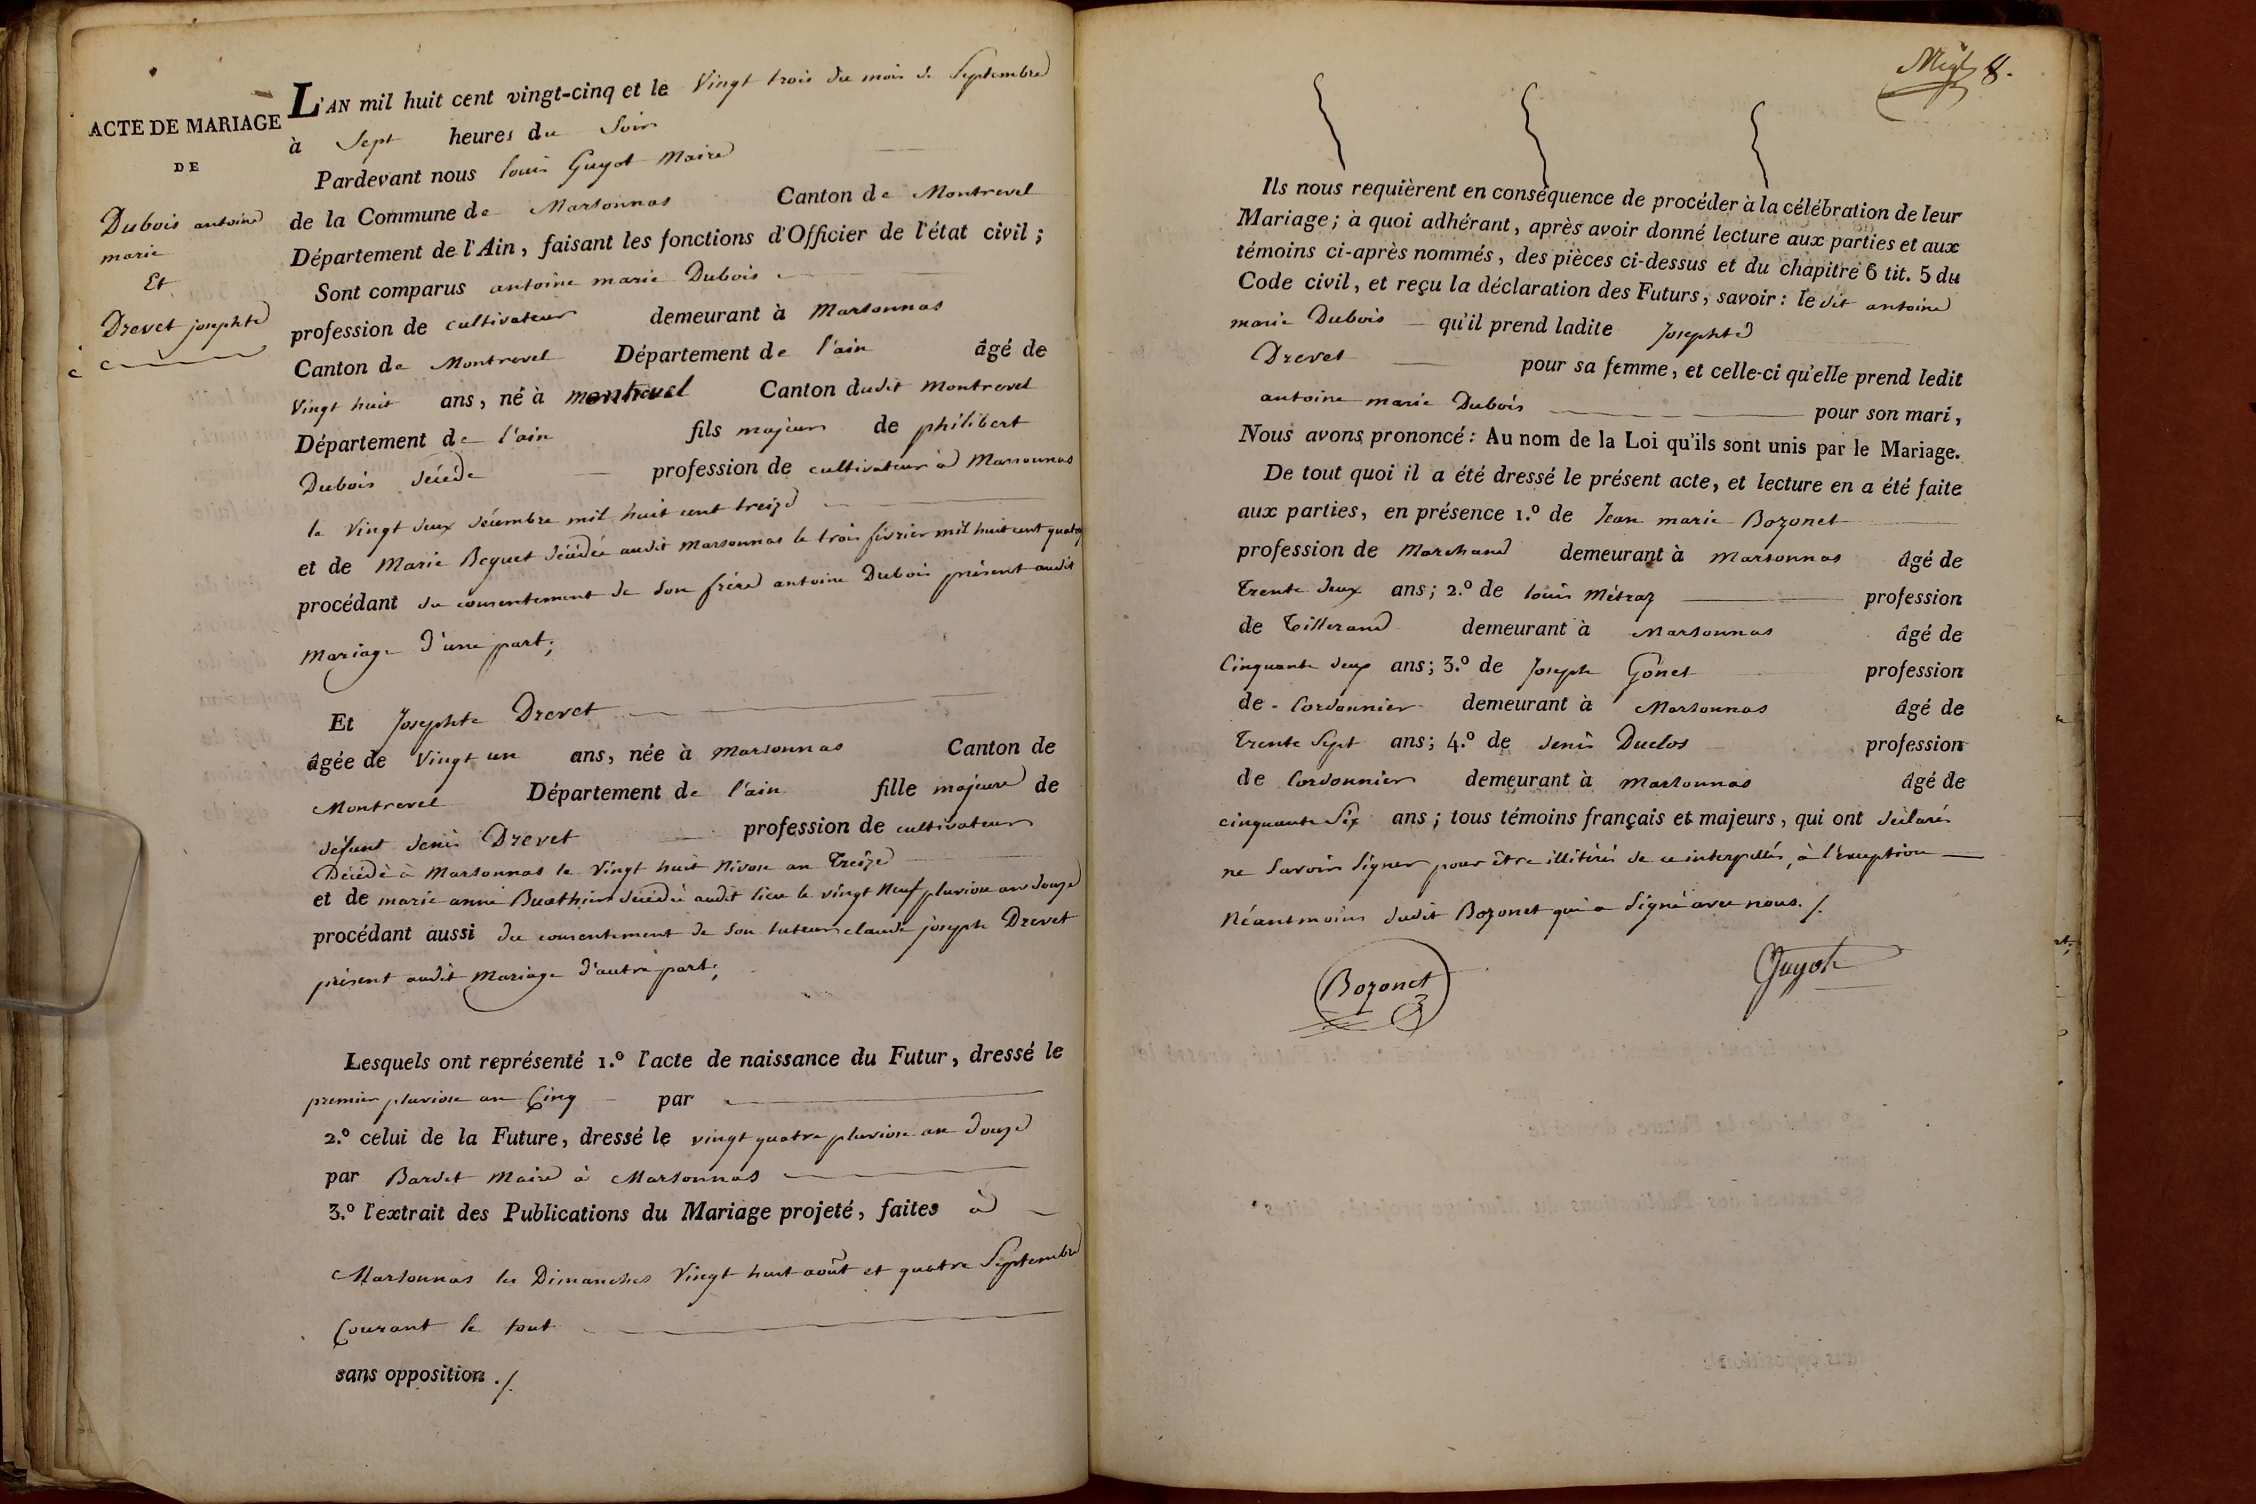 ACTE DE MARIAGE
DE
Dubois antoine
marie
Et
Drevet josephte
L'AN mil huit cent vingt-cinq et le Vingt trois du mois de Septembre
à Sept heures du Soir
Pardevant nous louis Guyot Maire
de la Commune de Marsonnas Canton de Montrevel
Département de l'Ain, faisant les fonctions d'Officier de l'état civil ;
Sont comparus antoine marie Dubois
profession de cultivateur demeurant à Marsonnas
Canton de Montrevel Département de l'ain âgé de
Vingt huit ans, né à montrevel Canton dudit Montrevel
Département de l'ain fils majeur de philibert
Dubois décédé profession de cultivateur à Marsonnas
le Vingt deux décembre mil huit cent treize
et de Marie Beguet décédée audit Marsonnas le trois février mil huit cent quatorze
procédant du consentement de son frère antoine Dubois présent audit
Mariage d'une part;
Et Josephte Drevet
âgée de Vingt un ans, née à Marsonnas Canton de
Montrevel Département de l'ain fille majeure de
défunt denis Drevet profession de cultivateur
Décédé à Marsonnas le Vingt huit Nivose an Treize
et de marie anne Buathier décédée audit lieu le vingt Neuf pluviose an douze
procédant aussi du consentement de son tuteur claude joseph Drevet
présent audit Mariage d'autre part;
Lesquels ont représenté 1.º l'acte de naissance du Futur, dressé le
premier pluviose an Cinq par
2.º celui de la Future, dressé le vingt quatre pluviose an douze
par Bardet Maire à Marsonnas
3.º l'extrait des Publications du Mariage projeté, faites à
Marsonnas les Dimanches Vingt huit août et quatre Septembre
Courant le tout
sans opposition ./.
8.
Ils nous requièrent en conséquence de procéder à la célébration de leur
Mariage; à quoi adhérant, après avoir donné lecture aux parties et aux
témoins ci-après nommés, des pièces ci-dessus et du chapitre 6 tit. 5 du
Code civil, et reçu la déclaration des Futurs, savoir : ledit antoine
marie Dubois qu'il prend ladite Josephte
Drevet pour sa femme, et celle-ci qu'elle prend ledit
antoine marie Dubois pour son mari,
Nous avons prononcé : Au nom de la Loi qu'ils sont unis par le Mariage.
De tout quoi il a été dressé le présent acte, et lecture en a été faite
aux parties, en présence 1.º de Jean marie Bozonet
profession de Marchand demeurant à Marsonnas âgé de
Trente deux ans; 2.º de louis Métraz profession
de Tisserand demeurant à Marsonnas âgé de
Cinquante deux ans; 3.º de Joseph Gonet profession
de Cordonnier demeurant à Marsonnas âgé de
Trente Sept ans; 4.º de denis Duclos profession
de Cordonnier demeurant à Marsonnas âgé de
cinquante Six ans; tous témoins français et majeurs, qui ont déclaré
ne Savoir Signer pour être illitérés de ce interpellés, à l'exception
Néantmoins dudit Bozonet qui a Signé avec nous. /.
Bozonet
Guyot